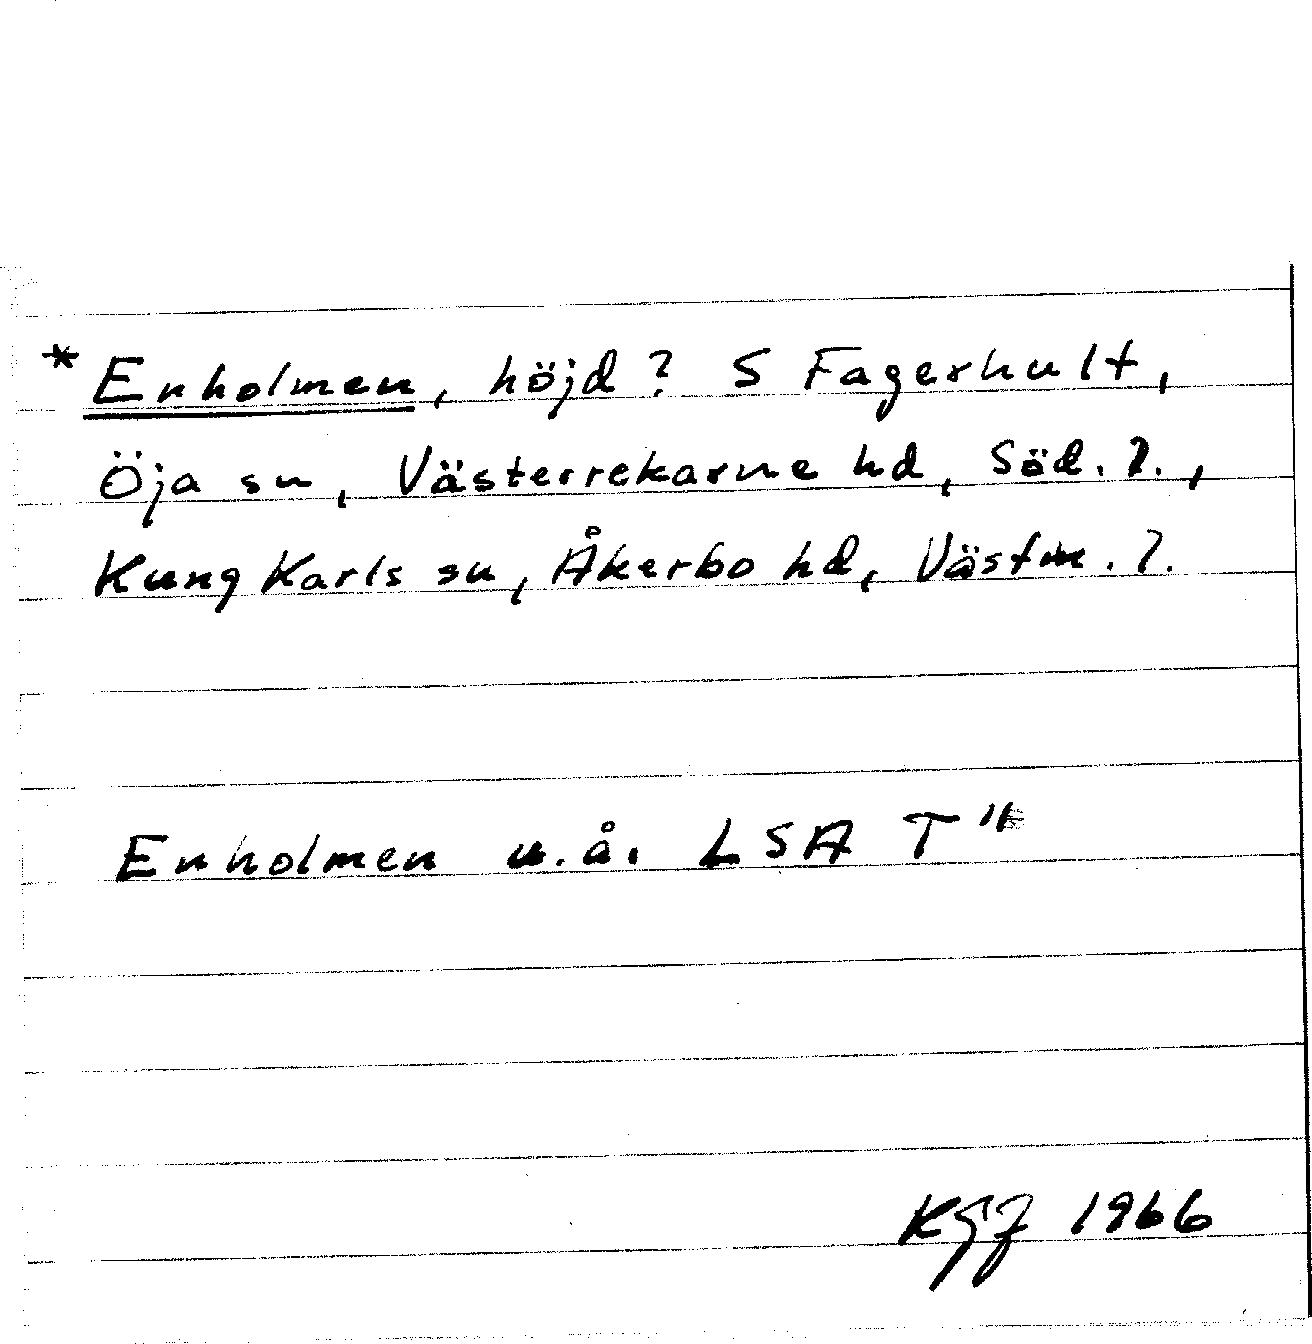 * Enholmen, höjd? S Fagerhult,
Öja sn, Västerrekarne hd, Söd. l.,
Kung Karls sn, Åkerbo hd, Västm. l.
Enholmen u.å. LSA T"
KGJ 1966